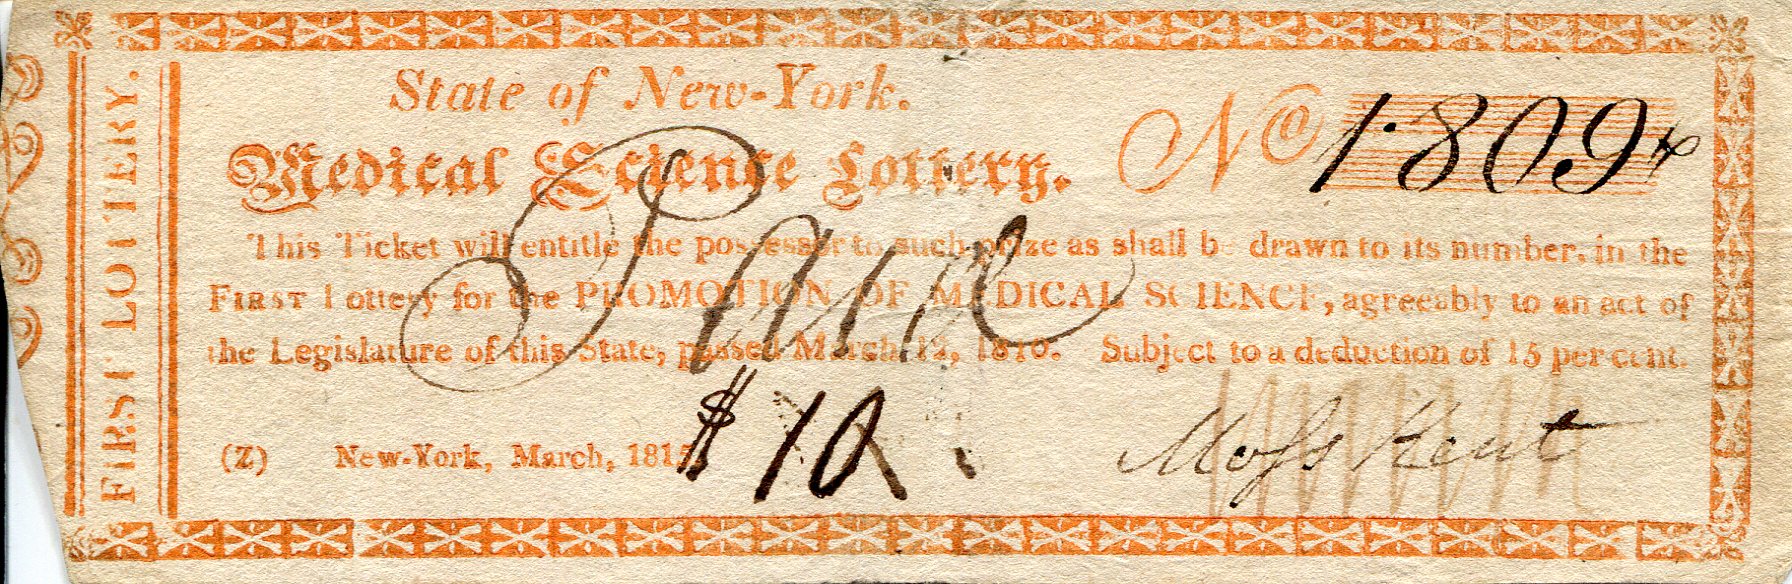 FIRST LOTTERY.
State of New-York.
Medical Science Lottery. No 1809
This Ticket will entitle the possessor to such prize as shall be drawn to its number, in the
FIRST Lottery for the PROMOTION OF MEDICAL SCIENCE, agreeably to an act of
the Legislature of this State, passed March 12, 1810. Subject to a deduction of 15 per cent.
Paid
$10
(Z) New-York, March, 1815.
Moss Kent